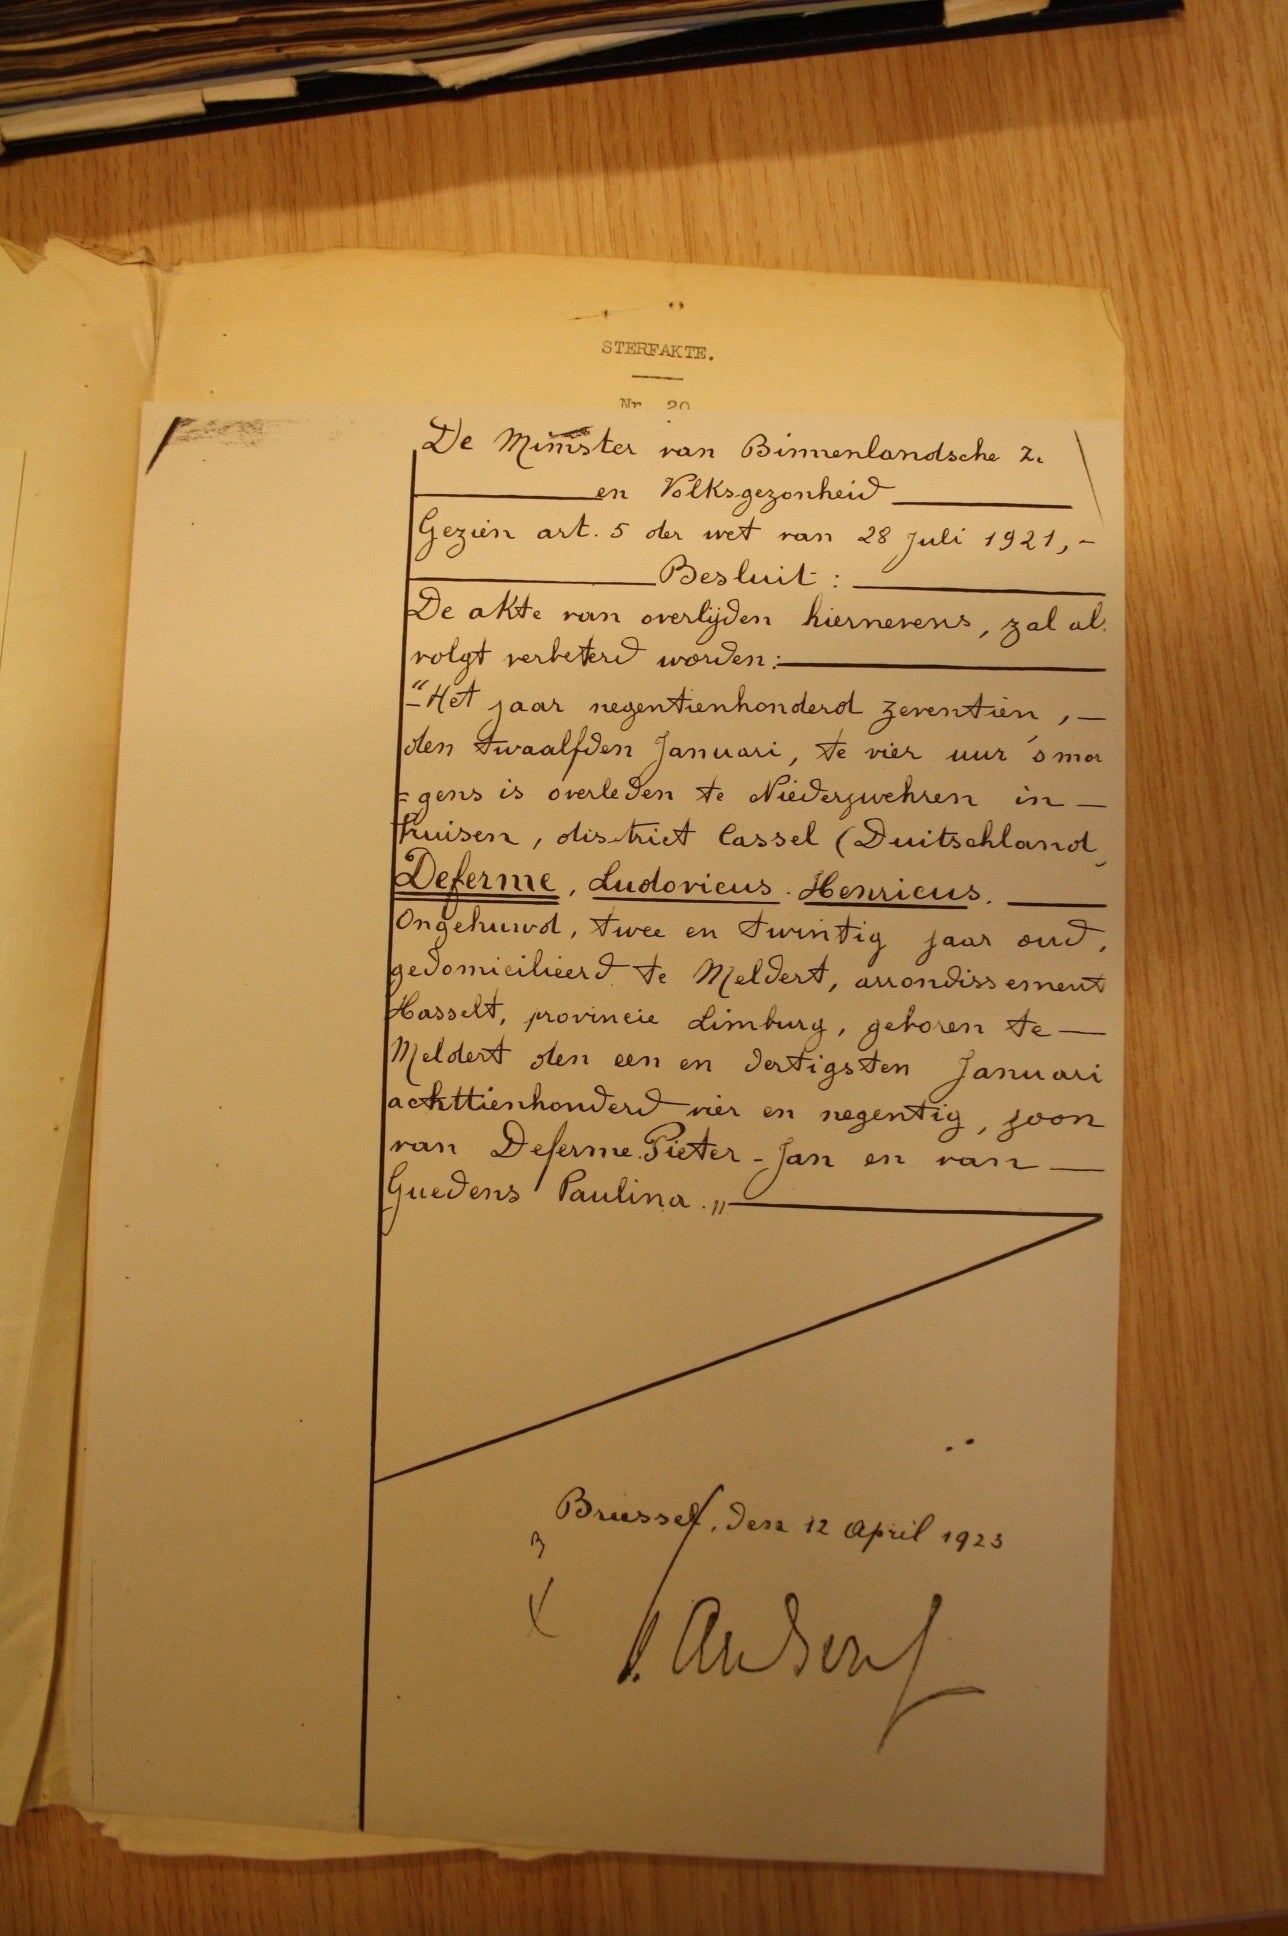 STERFAKTE.
Nr. 20
De Minister van Binnenlandsche Z.
en Volksgezonheid
Gezien art. 5 der wet van 28 Juli 1921, -
Besluit :
De akte van overlijden hiernevens, zal al
volgt verbeterd worden :
"Het jaar negentienhonderd zeventien, -
den twaalfden Januari, te vier uur 'smor
= gens is overleden te Niederzwehren in -
huisen, district Cassel (Duitschland
Deferme, Ludovicus - Henricus.
Ongehuwd, twee en twintig jaar oud,
gedomicilieerd te Meldert, arrondissement
Hasselt, provincie Limburg, geboren te -
Meldert den een en dertigsten Januari
achttienhonderd vier en negentig, zoon
van Deferme Pieter - Jan en van -
Guedens Paulina. "
Brussel, den 12 April 1923